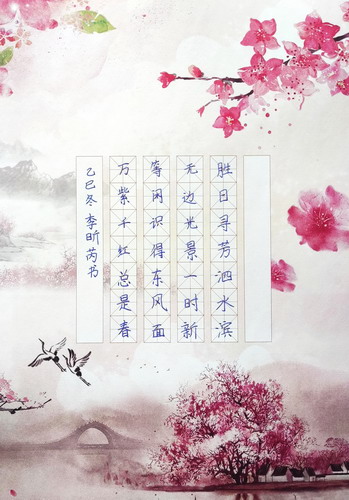 胜日寻芳泗水滨
无边光景一时新
等闲识得东风面
万紫千红总是春
乙巳冬李昕芮书